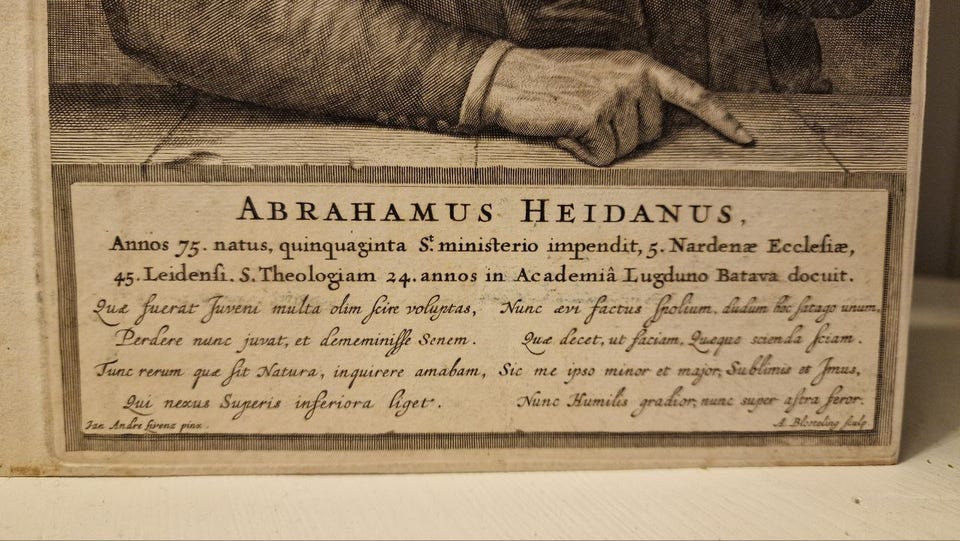 ABRAHAMUS HEIDANUS,
Annos 75. natus, quinquaginta St. ministerio impendit, 5. Nardenæ Ecclesiæ,
45. Leidensi. S. Theologiam 24. annos in Academiâ Lugduno Batava docuit.
Quæ fuerat Juveni multa olim scire voluptas,
Perdere nunc juvat, et dememinisse Senem.
Tunc rerum quæ sit Natura, inquirere amabam,
Qui nexus Superis inferiora liget.
Nunc ævi factus spolium, dudum hoc satago unum,
Quæ decet, ut faciam, Quæque scienda sciam.
Sic me ipso minor et major, Sublimis et Imus,
Nunc Humilis gradior, nunc super astra feror.
Jan Andre Lievenz pinx.
A. Bloteling sculp